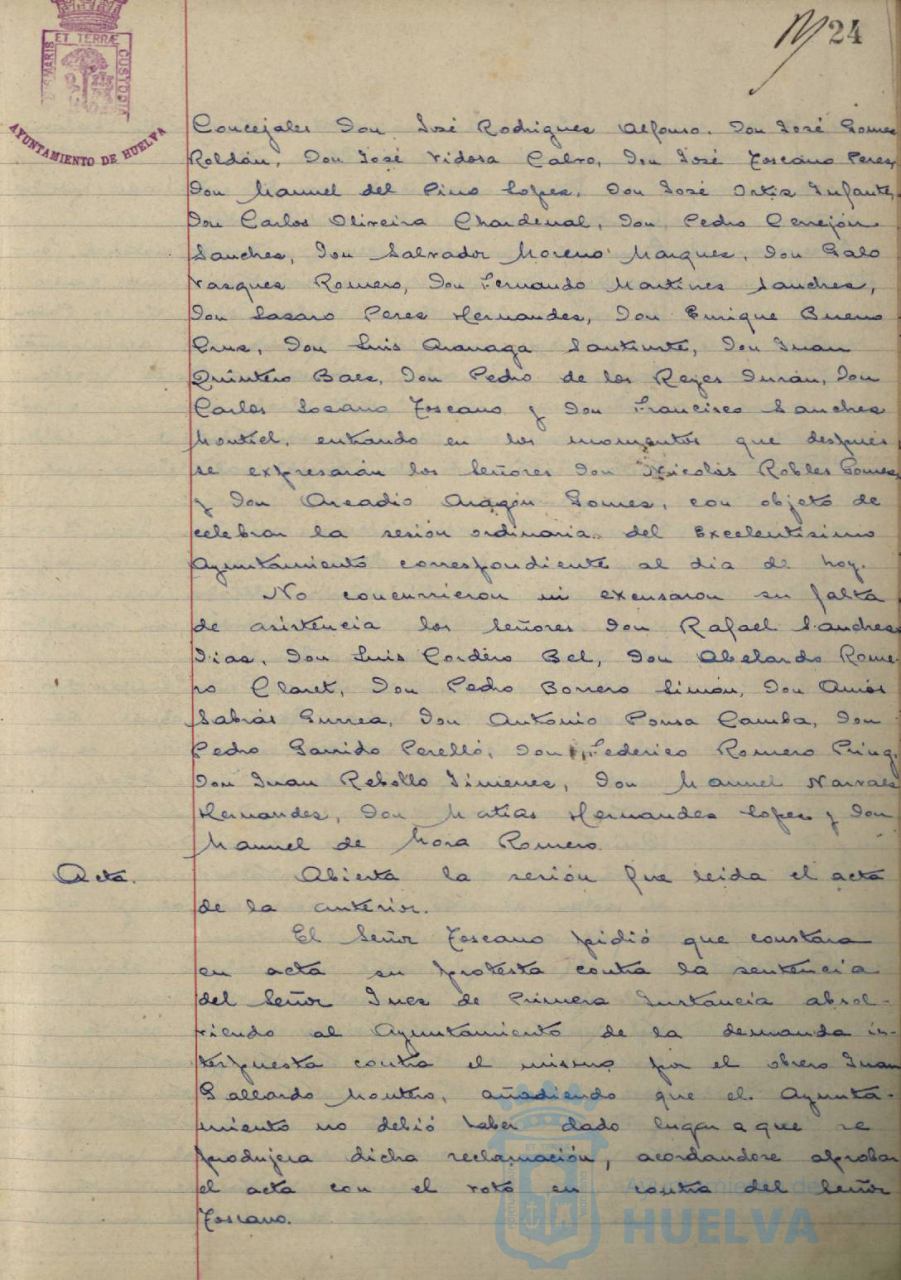 24
ET TERRÆ
CUSTODIA
MARIS
AYUNTAMIENTO DE HUELVA
Concejales Don José Rodrigues Alfonso. Don José Gomes
Roldán, Don José Vidosa Calvo, Don José Toscano Peres,
Don Manuel del Pino Lopes, Don José Ortis Infante,
Don Carlos Oliveira Chardenal, Don Pedro Cerrejón
Sanches, Don Salvador Moreno Marques, Don Galo
Vasques Romero, Don Fernando Martines Sanches,
Don Lasaro Peres Hernandes, Don Enrique Bueno
Crus, Don Luis Aranaga Santiuste, Don Juan
Quintero Baes, Don Pedro de los Reyes Durán, Don
Carlos Losano Toscano y Don Francisco Sanches
Montiel, entrando en los momentos que después
se expresarán los Señores Don Nicolás Robles Gomes,
y Don Arcadio Aragón Gomes, con objeto de
celebrar la sesión ordinaria del Excelentisimo
Ayuntamiento correspondiente al dia de hoy.
No concurrieron ni excusaron su falta
de asistencia los Señores Don Rafael Sanches
Dias, Don Luis Cordero Bel, Don Abelardo Rome-
ro Claret, Don Pedro Borrero Limón, Don Amós
Sabrás Gurrea, Don Antonio Ponsa Camba, Don
Pedro Garrido Perelló, Don Federico Romero Pring,
Don Juan Rebollo Jimenes, Don Manuel Narvaes
Hernandes, Don Matias Hernandes Lopes y Don
Manuel de Mora Romero.
Acta. Abierta la sesión fue leida el acta
de la anterior.
El Señor Toscano pidió que constara
en acta su protesta contra la sentencia
del Señor Jues de Primera Instancia absol-
viendo al Ayuntamiento de la demanda in-
terpuesta contra el mismo por el obrero Juan
Gallardo Montero, añadiendo que el Ayunta-
miento no debió haber dado lugar a que se
produjera dicha reclamación, acordandose aprobar
el acta con el voto en contra del Señor
Toscano.
Ayuntamiento de
HUELVA